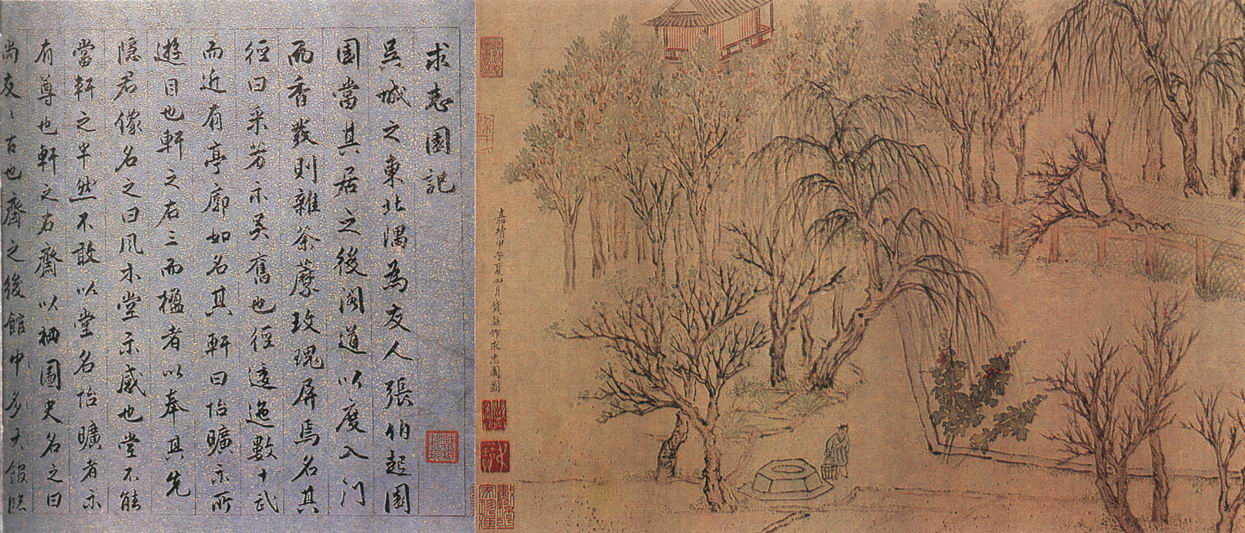 嘉靖甲子夏四月錢穀作求志園圖
求志園記
吳城之東北隅為友人張伯起園
園當其居之後閣道以度入門
而香發則雜荼蘼玫瑰屏焉名其
徑曰采芳示吳舊也徑逶迤數十武
而近有亭廓如名其軒曰怡曠示所
遊目也軒之右三而楹者以奉其先
隱君像名之曰風木堂示感也堂不能
當軒之半然不敢以堂名怡曠者示
有尊也軒之右齋以栖圖史名之曰
尚友〻古也齋之後館中